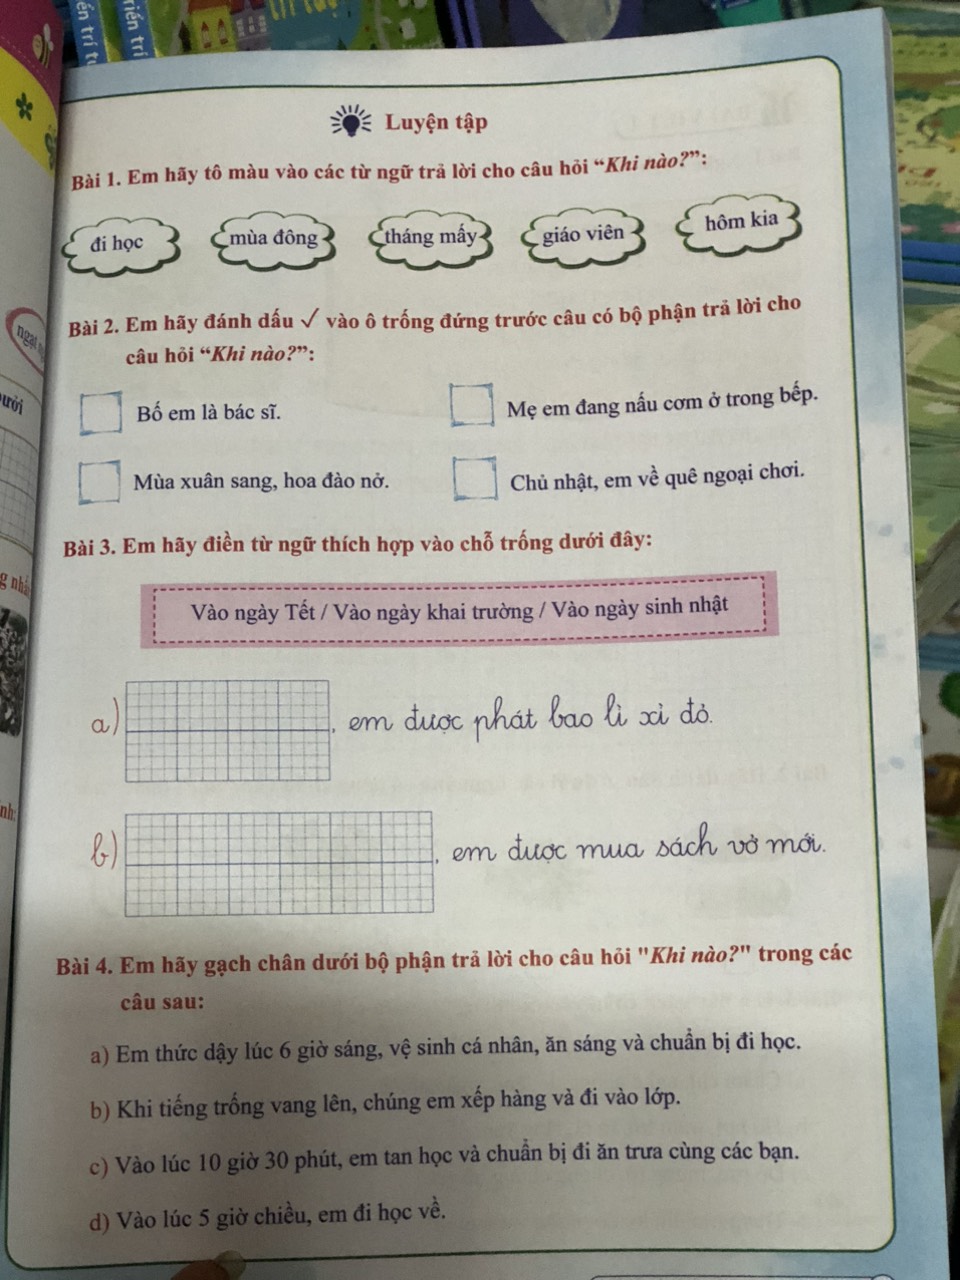 ến trí t
riển trí
Luyện tập
Bài 1. Em hãy tô màu vào các từ ngữ trả lời cho câu hỏi “Khi nào?”:
đi học mùa đông tháng mấy giáo viên hôm kia
Bài 2. Em hãy đánh dấu ✓ vào ô trống đứng trước câu có bộ phận trả lời cho
câu hỏi “Khi nào?”:
Bố em là bác sĩ. Mẹ em đang nấu cơm ở trong bếp.
Mùa xuân sang, hoa đào nở. Chủ nhật, em về quê ngoại chơi.
Bài 3. Em hãy điền từ ngữ thích hợp vào chỗ trống dưới đây:
Vào ngày Tết / Vào ngày khai trường / Vào ngày sinh nhật
a) , em được phát bao lì xì đỏ.
b) , em được mua sách vở mới.
Bài 4. Em hãy gạch chân dưới bộ phận trả lời cho câu hỏi "Khi nào?" trong các
câu sau:
a) Em thức dậy lúc 6 giờ sáng, vệ sinh cá nhân, ăn sáng và chuẩn bị đi học.
b) Khi tiếng trống vang lên, chúng em xếp hàng và đi vào lớp.
c) Vào lúc 10 giờ 30 phút, em tan học và chuẩn bị đi ăn trưa cùng các bạn.
d) Vào lúc 5 giờ chiều, em đi học về.